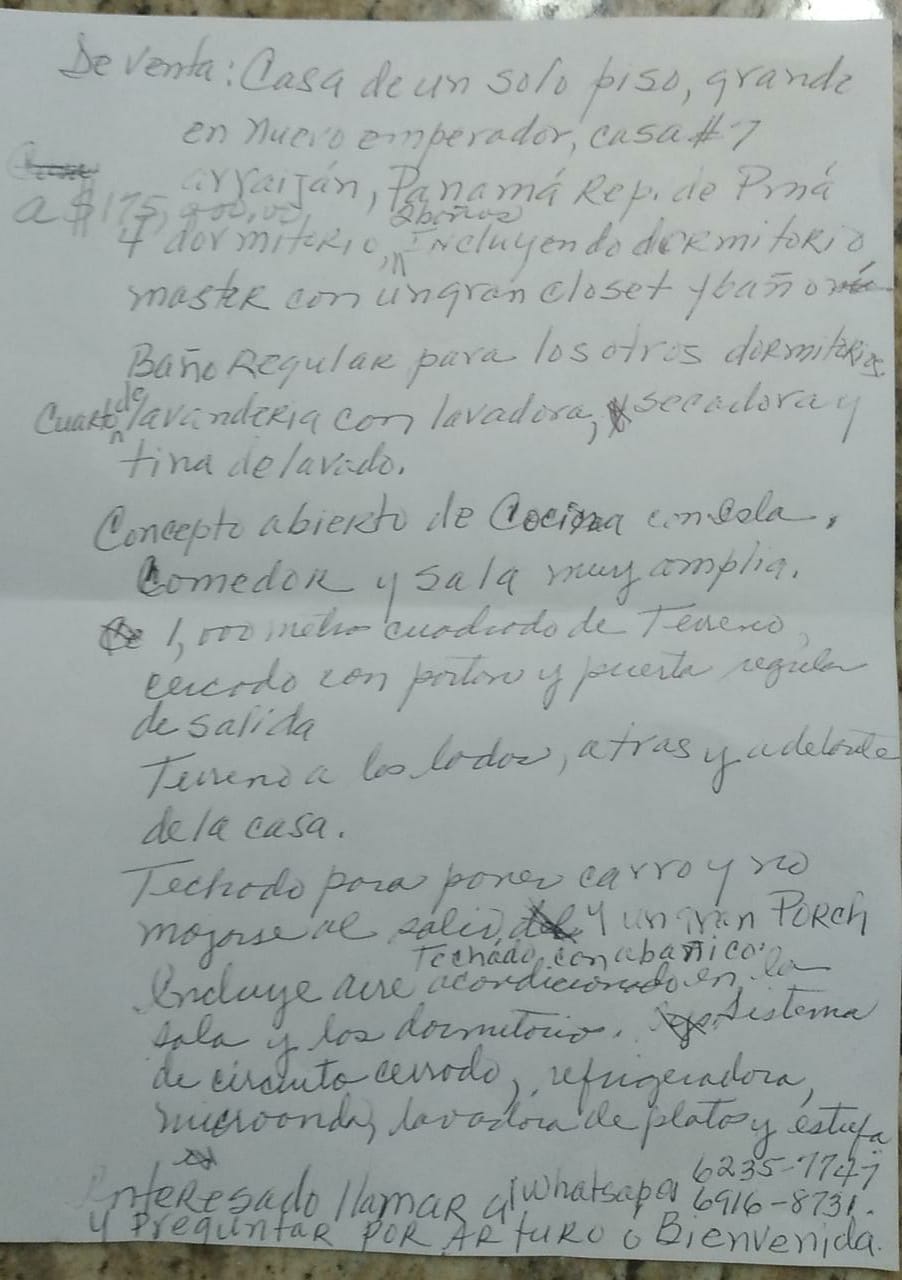 De venta: Casa de un solo piso, grande
en nuevo emperador, casa # 7
arraiján, Panamá Rep. de Pmá
a $175,000,00
2 baños
4 dormitorio, Incluyendo dormitorio
master con un gran closet y baño
Baño Regular para los otros dormitorios
Cuarto de lavanderia con lavadora, secadora y
tina de lavado.
Concepto abierto de Cocina con Isla,
Comedor y sala muy amplia.
1,000 metro cuadrado de Terreno,
cercado con porton y puerta regular
de salida
Terreno a los lados, atras y adelante
de la casa.
Techado para poner carro y no
mojarse al salir, y un gran Porch
Techado con abanico.
Incluye aire acondicionado en la
sala y los dormitorio. Sistema
de circuito cerrado, refrigeradora,
microonda, lavadora de platos y estufa
Interesado llamar al Whatsapp 6235-7747
6916-8731.
y Preguntar por Arturo o Bienvenida.